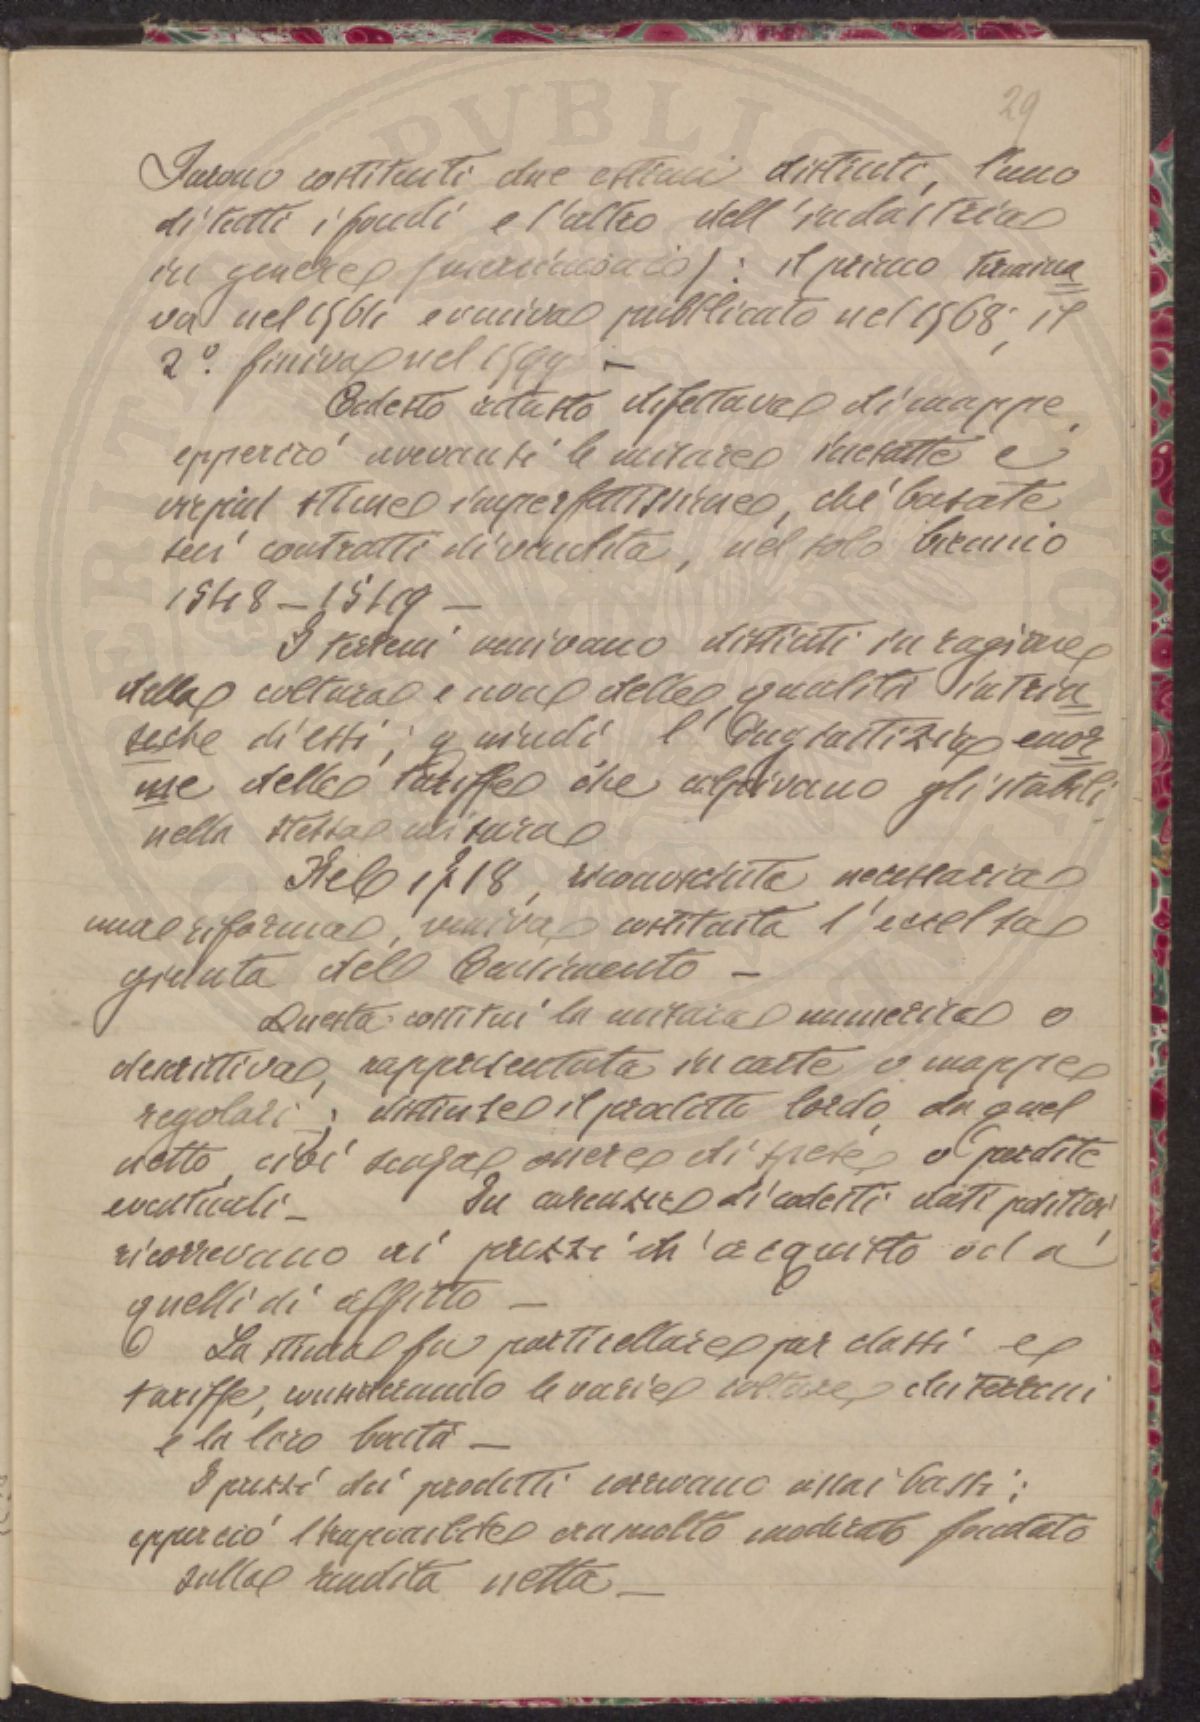 29
Furono costituiti due estimi distinti, l'uno
di tutti i fondi e l'altro dell'industria
in genere (mercimonio): il primo termina
va nel 1564 e veniva pubblicato nel 1568; il
2º. finiva nel 1599 –
Codesto catasto difettava di mappe,
epperciò avevansi le misure inesatte e
viepiù stime imperfettissime, chè basate
sui contratti di vendita, nel solo biennio
1548 – 1549 –
I terreni venivano distinti in ragione
della coltura e non delle qualità intrin
seche di essi; quindi l'ingiustizia enor
me delle tariffe che colpivano gli stabili
nella stessa misura
Nel 1718, riconosciuta necessaria
una riforma, veniva costituita l'eccelsa
giunta del Censimento –
Questa costituì la misura numerica o
descrittiva, rappresentata in carte o mappe
regolari; distinse il prodotto lordo, da quel
netto, cioè senza onere di spese, o perdite
eventuali – In carenza di codesti dati positivi
ricorrevano ai prezzi di acquisto od a
quelli di affitto –
La stima fu particellare per classi e
tariffe, considerando le varie colture dei terreni
e la loro bontà –
I prezzi dei prodotti correvano assai bassi;
epperciò l'imponibile era molto moderato fondato
sulla rendita netta –
PVBLIC